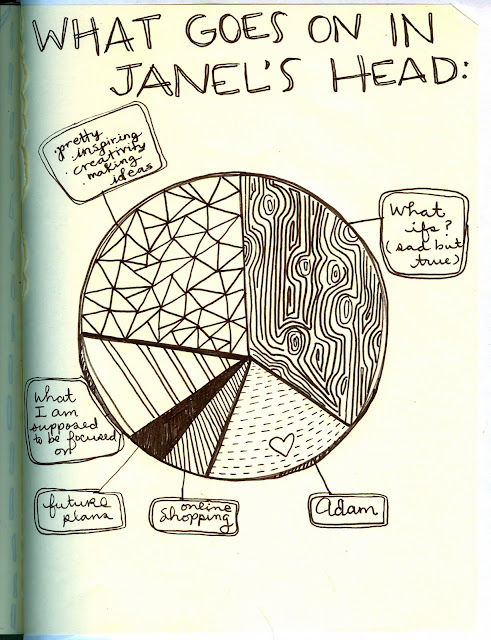 WHAT GOES ON IN
JANEL'S HEAD:
•pretty
•inspiring
•creativity
•making
ideas
What
ifs?
(sad but
true)
What
I am
supposed
to be focused
on
future
plans
online
shopping
adam